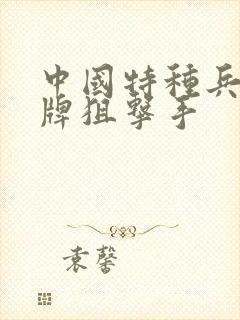 中國特種兵
牌狙擊手
袁馨